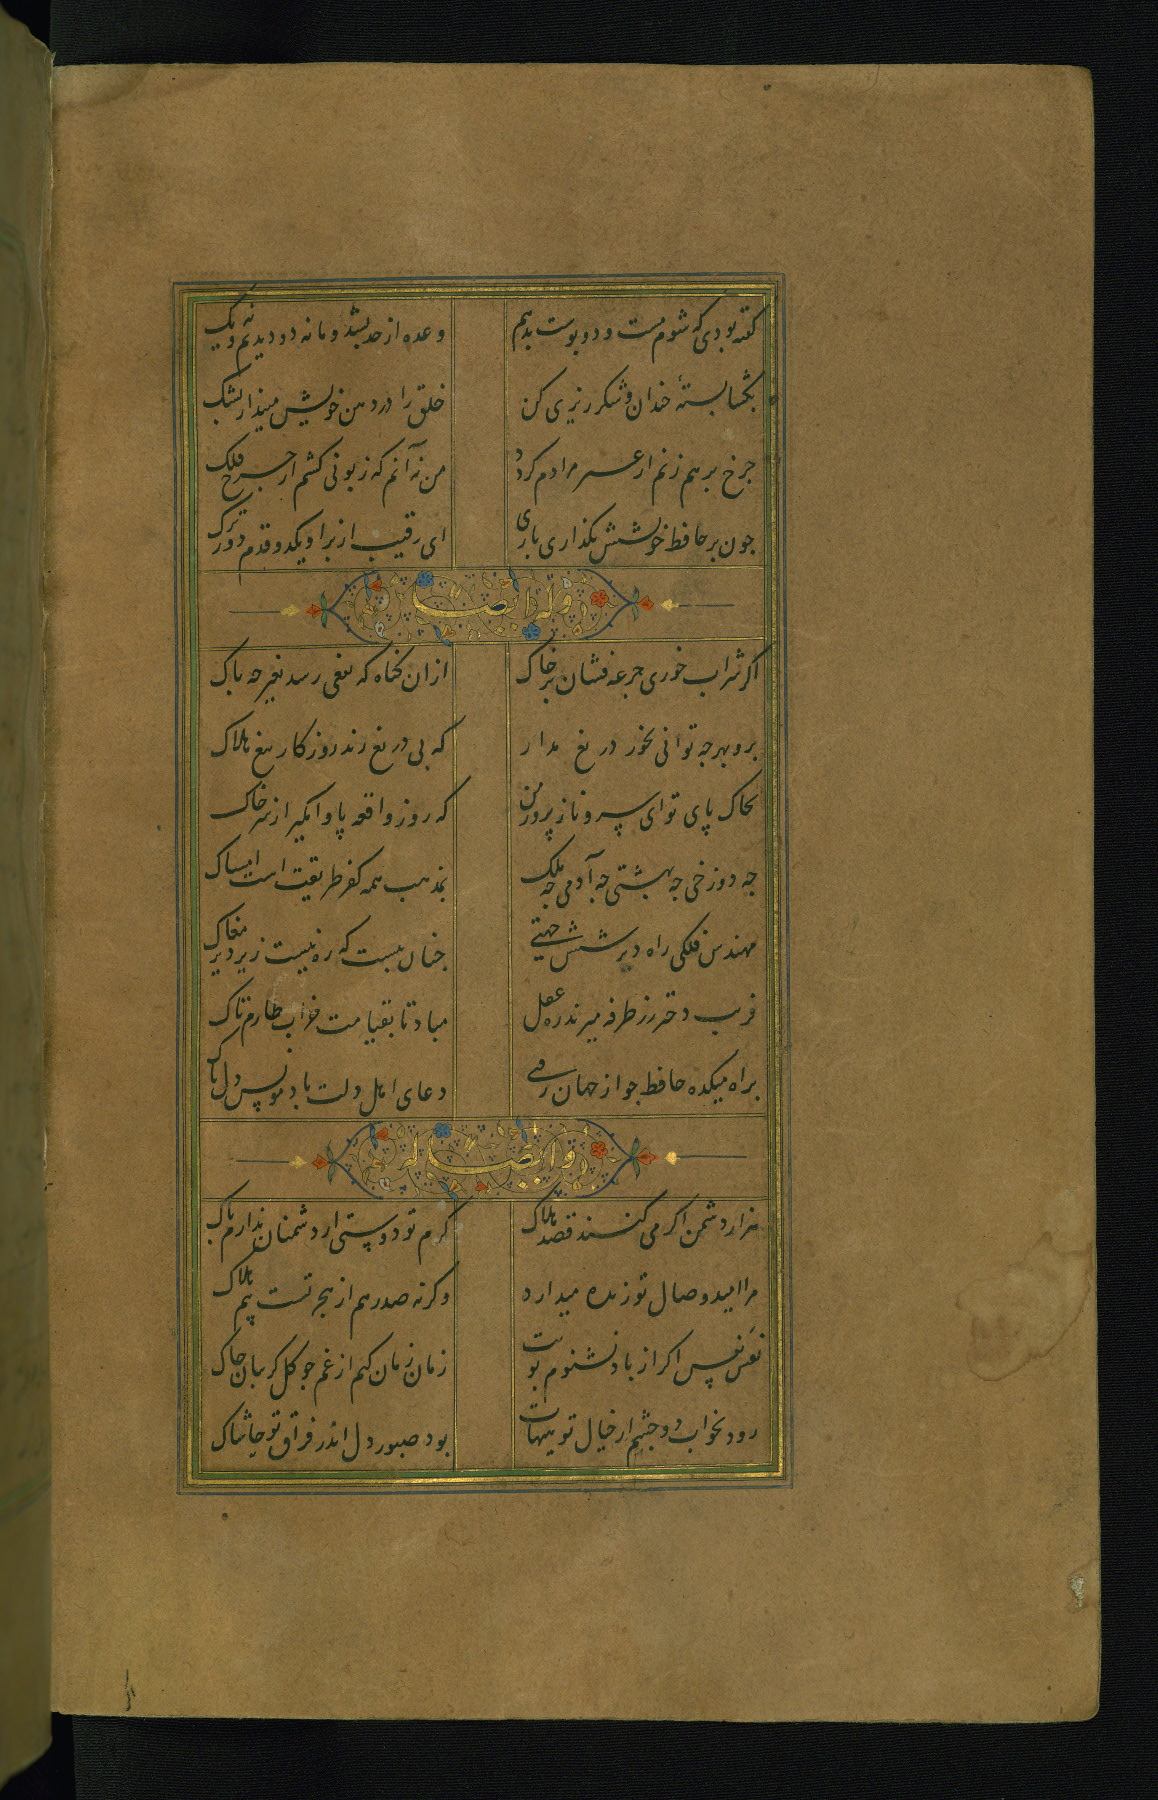 گفته بودی که شوم مست و دو بوست بدهم
وعده از حد بشد و ما نه دو دیدیم و نه یک
بگشا پستهٔ خندان و شکرریزی کن
خلق را در دهن خویش مینداز بشک
چرخ برهم زنم ار غیر مرادم گردد
من نه آنم که زبونی کشم از چرخ فلک
چون بر حافظ خویشش نگذاری باری
ای رقیب از بر او یکدو قدم دورترک
وله ایضا
اگر شراب خوری جرعه فشان بر خاک
از ان گناه که نفعی رسد بغیر چه باک
برو بهرچه توانی بخور دریغ مدار
که بی دریغ زند روزگار تیغ هلاک
بخاک پای تو ای سرو نازپرور من
که روز واقعه پا وامگیر از سر خاک
چه دوزخی چه بهشتی چه آدمی چه ملک
بمذهب همه کفر طریقت است امساک
مهندس فلکی راه دیر شش جهتی
چنان ببست که ره نیست زیر دیر مغاک
فریب دختر رز طرفه میزند ره عقل
مباد تا بقیامت خراب طارم تاک
براه میکده حافظ جو از جهان رفتی
دعای اهل دلت باد مونس دل پاک
وله ایضا
هزار دشمن اگر می کنند قصد هلاک
گرم تو دوستی از دشمنان ندارم باک
مرا امید وصال تو زنده میدارد
وگرنه صدرهم از هجر تست بیم هلاک
نفس نفس اگر از باد نشنوم بویت
زمان زمان کنم از غم چو گل گریبان چاک
رود بخواب دو چشم از خیال تو هیهات
بود صبور دل اندر فراق تو حاشاک